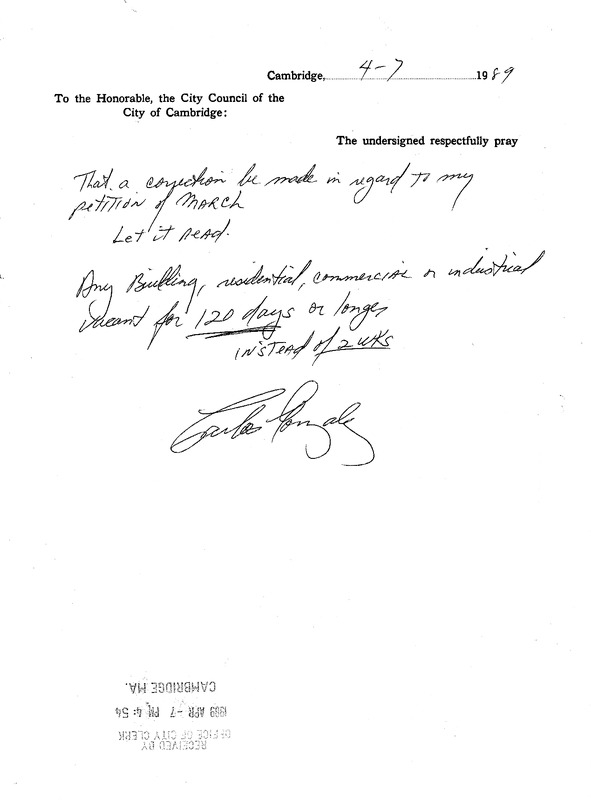 Cambridge, 4-7 1989
To the Honorable, the City Council of the
City of Cambridge:
The undersigned respectfully pray
That a correction be made in regard to my
petition of MARCH
Let it read.
Any Building, residential, commercial or industrial
vacant for 120 days or longer
INSTEAD of 2 WKS
Carlos Gonzalez
RECEIVED BY
OFFICE OF CITY CLERK
1989 APR -7 PM 4:54
CAMBRIDGE MA.